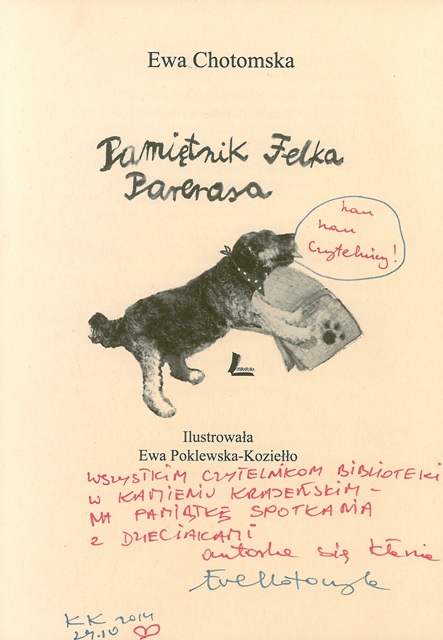 Ewa Chotomska
Pamiętnik Felka
Parerasa
hau
hau
Czytelnicy!
LITERATURA
Ilustrowała
Ewa Poklewska-Koziełło
WSZYSTKIM CZYTELNIKOM BIBLIOTEKI
W KAMIENIU KRAJEŃSKIM -
NA PAMIĄTKĘ SPOTKANIA
z DZIECIAKAMI
autorka się kłania
EwaChotomska
KK 2014
29.10